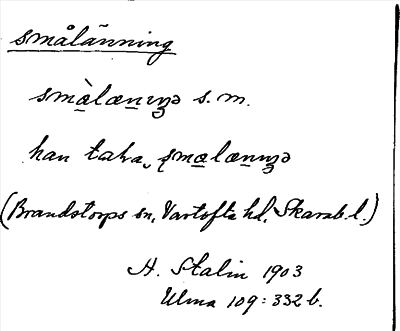 smålänning
smàlænıŋə s. m.
han tala, smalænıŋə
(Brandstorps sn, Vartofta hd, Skarab. l.)
H. Stalin 1903
Ulma 109:332 b.